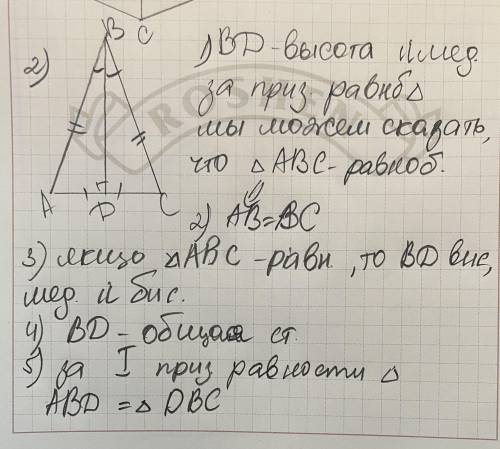 B
C
2)
1) BD - высота и мед.
за приз. равноб △
мы можем сказать,
что △ABC - равноб.
A D C
2) AB = BC
3) якщо △ABC - равн., то BD вис,
мед. и бис.
4) BD - общая ст.
5) за I приз равности △
ABD = △ DBC
ROSHEN